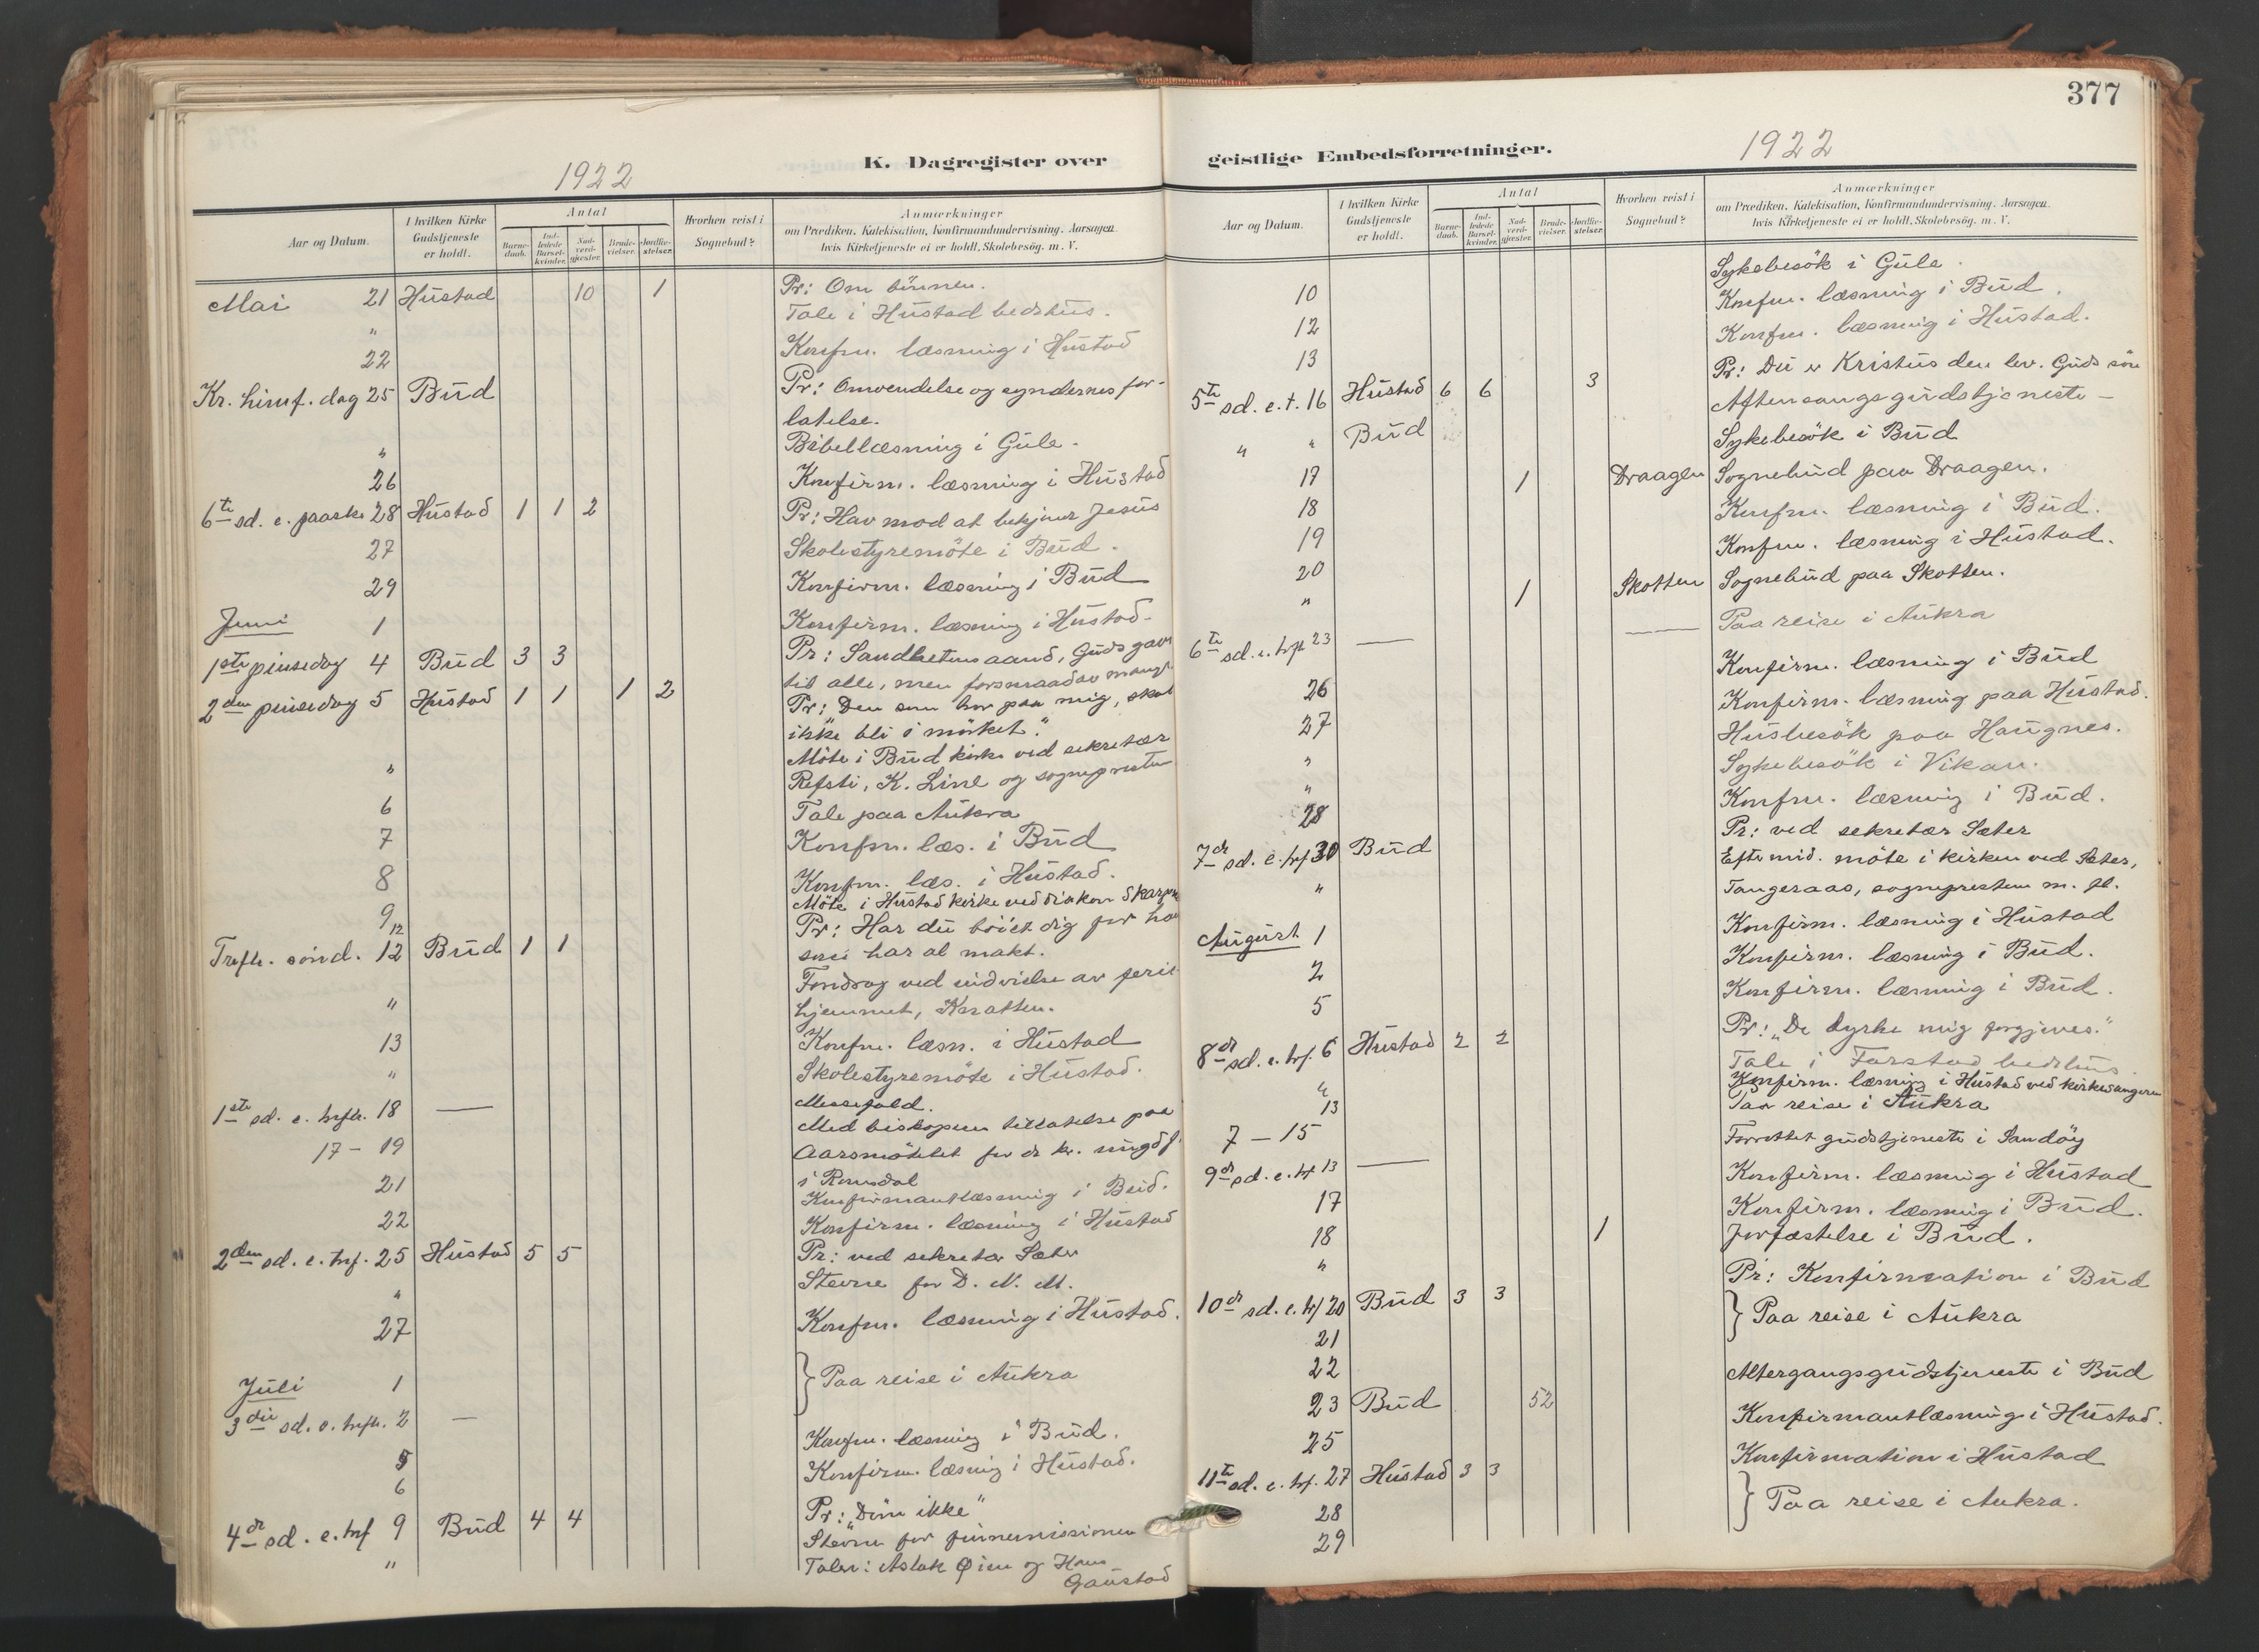 377
K. Dagregister over
geistlige Embedsforretninger.
1922
1922
Aar og Datum.
I hvilken Kirke Gudstjeneste er holdt.
Antal
Barne-daab.
Ind-ledede Barsel-kvinder.
Nad-verd-gjæster.
Brude-vielser.
Jordfæ-stelser.
Hvorhen reist i Sognebud?
Anmærkninger
om Prædiken, Katekisation, Konfirmandundervisning, Aarsagen
hvis Kirketjeneste ei er holdt, Skolebesøg. m. V.
Mai 21 Hustad 10 1 Pr: Om bönnen.
" Tale i Hustad bedehus.
22 Konfm. læsning i Hustad
Kr. himf. dag 25 Bud Pr: Omvendelse og syndernes for-
latelse.
" Bibellæsning i Gule.
26 Konfirm. læsning i Hustad
6te sd. e. paaske 28 Hustad 1 1 2 Pr: Hav mod at bekjenne Jesus
27 Skolestyremöte i Bud.
29 Konfirm. læsning i Bud
Juni 1 Konfirm. læsning i Hustad.
1ste pinsedag 4 Bud 3 3 Pr: Sandhetens aand, Guds gave
til alle, men forsmaadd av mange
2den pinsedag 5 Hustad 1 1 1 2 Pr: "Den som tror paa mig, skal
ikke bli i mörket."
" Möte i Bud kirke ved sekretær
Refsti, K. Line og sognepresten
6 Tale paa Aukra
7 Konfm. læs. i Bud
8 Konfm. læs. i Hustad.
9 Möte i Hustad kirke ved diakon
12
Trefh. sönd. 12 Bud 1 1 Pr: Har du böiet dig for ham
som har al makt.
" Foredrag ved indvielse av ferie-
hjemmet, Knatten.
13 Konfm. læsn. i Hustad
" Skolestyremöte i Hustad.
1ste sd. e. trefh. 18 — Messefald.
17 - 19 Med biskopens tillatelse paa
Aarsmötet for de kr. ungdf.
i Romsdal
21 Konfirmantlæsning i Bud.
22 Konfirm. læsning i Hustad
2den sd. e. tref. 25 Hustad 5 5 Pr: ved sekretær Sæter
" Stevne for D. N. M.
27 Konfm. læsning i Hustad.
Juli 1 } Paa reise i Aukra
3die sd. e. trefh. 2 —
5 Konfm. læsning i Bud.
6 Konfirm. læsning i Hustad.
4de sd. e. tref 9 Bud 4 4 Pr: "Döm ikke"
" Stevne for finnemissionen
Taler: Aslak Øien og Hans
Gaustad
Aar og Datum.
I hvilken Kirke Gudstjeneste er holdt.
Antal
Barne-daab.
Ind-ledede Barsel-kvinder.
Nad-verd-gjæster.
Brude-vielser.
Jordfæ-stelser.
Hvorhen reist i Sognebud?
Anmærkninger
om Prædiken, Katekisation, Konfirmandundervisning, Aarsagen
hvis Kirketjeneste ei er holdt, Skolebesøg. m. V.
10 Sykebesök i Gule.
12 Konfm. læsning i Bud.
13 Konfm. læsning i Hustad.
5te sd. e. t. 16 Hustad 6 6 3 Pr: Du er Kristus den lev. Guds sön
" " Bud Aftensangsgudstjeneste -
17 Sykebesök i Bud
18 1 Draagen Sognebud paa Draagen.
19 Konfm. læsning i Bud.
20 Konfm. læsning i Hustad.
" 1 Skotten Sognebud paa Skotten.
6te sd. e. tref 23 — — Paa reise i Aukra
26 Konfirm. læsning i Bud
27 Konfirm. læsning paa Hustad.
" Husbesök paa Haugnes.
" Sykebesök i Vikan.
28 Konfm. læsning i Bud.
7de sd. e. tref 30 Bud Pr: ved sekretær Sæter
" Efterm.d. möte i kirken ved Sæter,
Tangeraas, sognepresten m. fl.
August 1 Konfirm. læsning i Hustad
2 Konfirm. læsning i Bud.
5 Konfirm. læsning i Bud.
8de sd. e. tref. 6 Hustad 2 2 Pr: "De dyrke mig forgjeves."
" Tale i Farstad bedehus.
13 Konfirm. læsning i Hustad ved kirkesangeren
7 - 15 Paa reise i Aukra
9de sd. e. tref 13 — Forrettet gudstjeneste i Sandöy
17 Konfirm. læsning i Hustad
18 Konfirm. læsning i Bud.
" 1 Jorfæstelse i Bud.
10de sd. e. tref 20 Bud 3 3 Pr: Konfirmation i Bud
21
22 } Paa reise i Aukra
23 Bud 52 Altergangsgudstjeneste i Bud
25 Konfirmantlæsning i Hustad.
11te sd. e. tref. 27 Hustad 3 3 Konfirmation i Hustad
28
29 } Paa reise i Aukra.